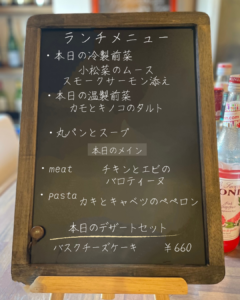 ランチメニュー
・本日の冷製前菜
小松菜のムース
スモークサーモン添え
・本日の温製前菜
カモとキノコのタルト
・丸パンとスープ
本日のメイン
・meat チキンとエビの
バロティーヌ
・pasta カキとキャベツのペペロン
本日のデザートセット
バスクチーズケーキ ¥660
MONIN